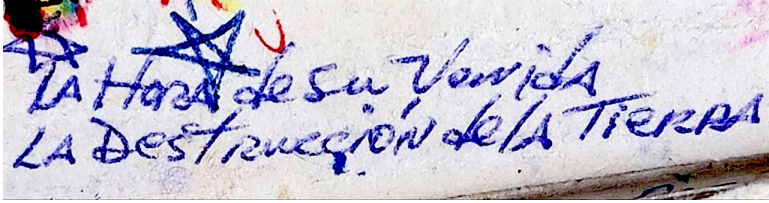 LA HORA de su Venida
LA Destrucción de lA TierRA